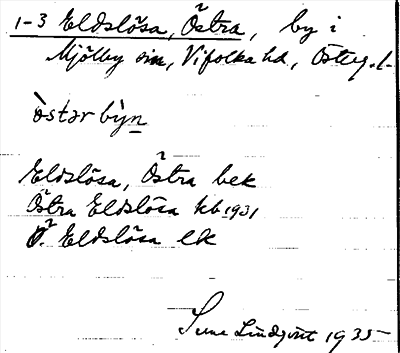 1-3 Eldslösa, Östra, by i
Mjölby sn, Vifolka hd, Österg. l.
òstər bỳn
Eldslösa, Östra bek
Östra Eldslösa kb 1931
Ö. Eldslösa lk
Sune Lindqvist 1935